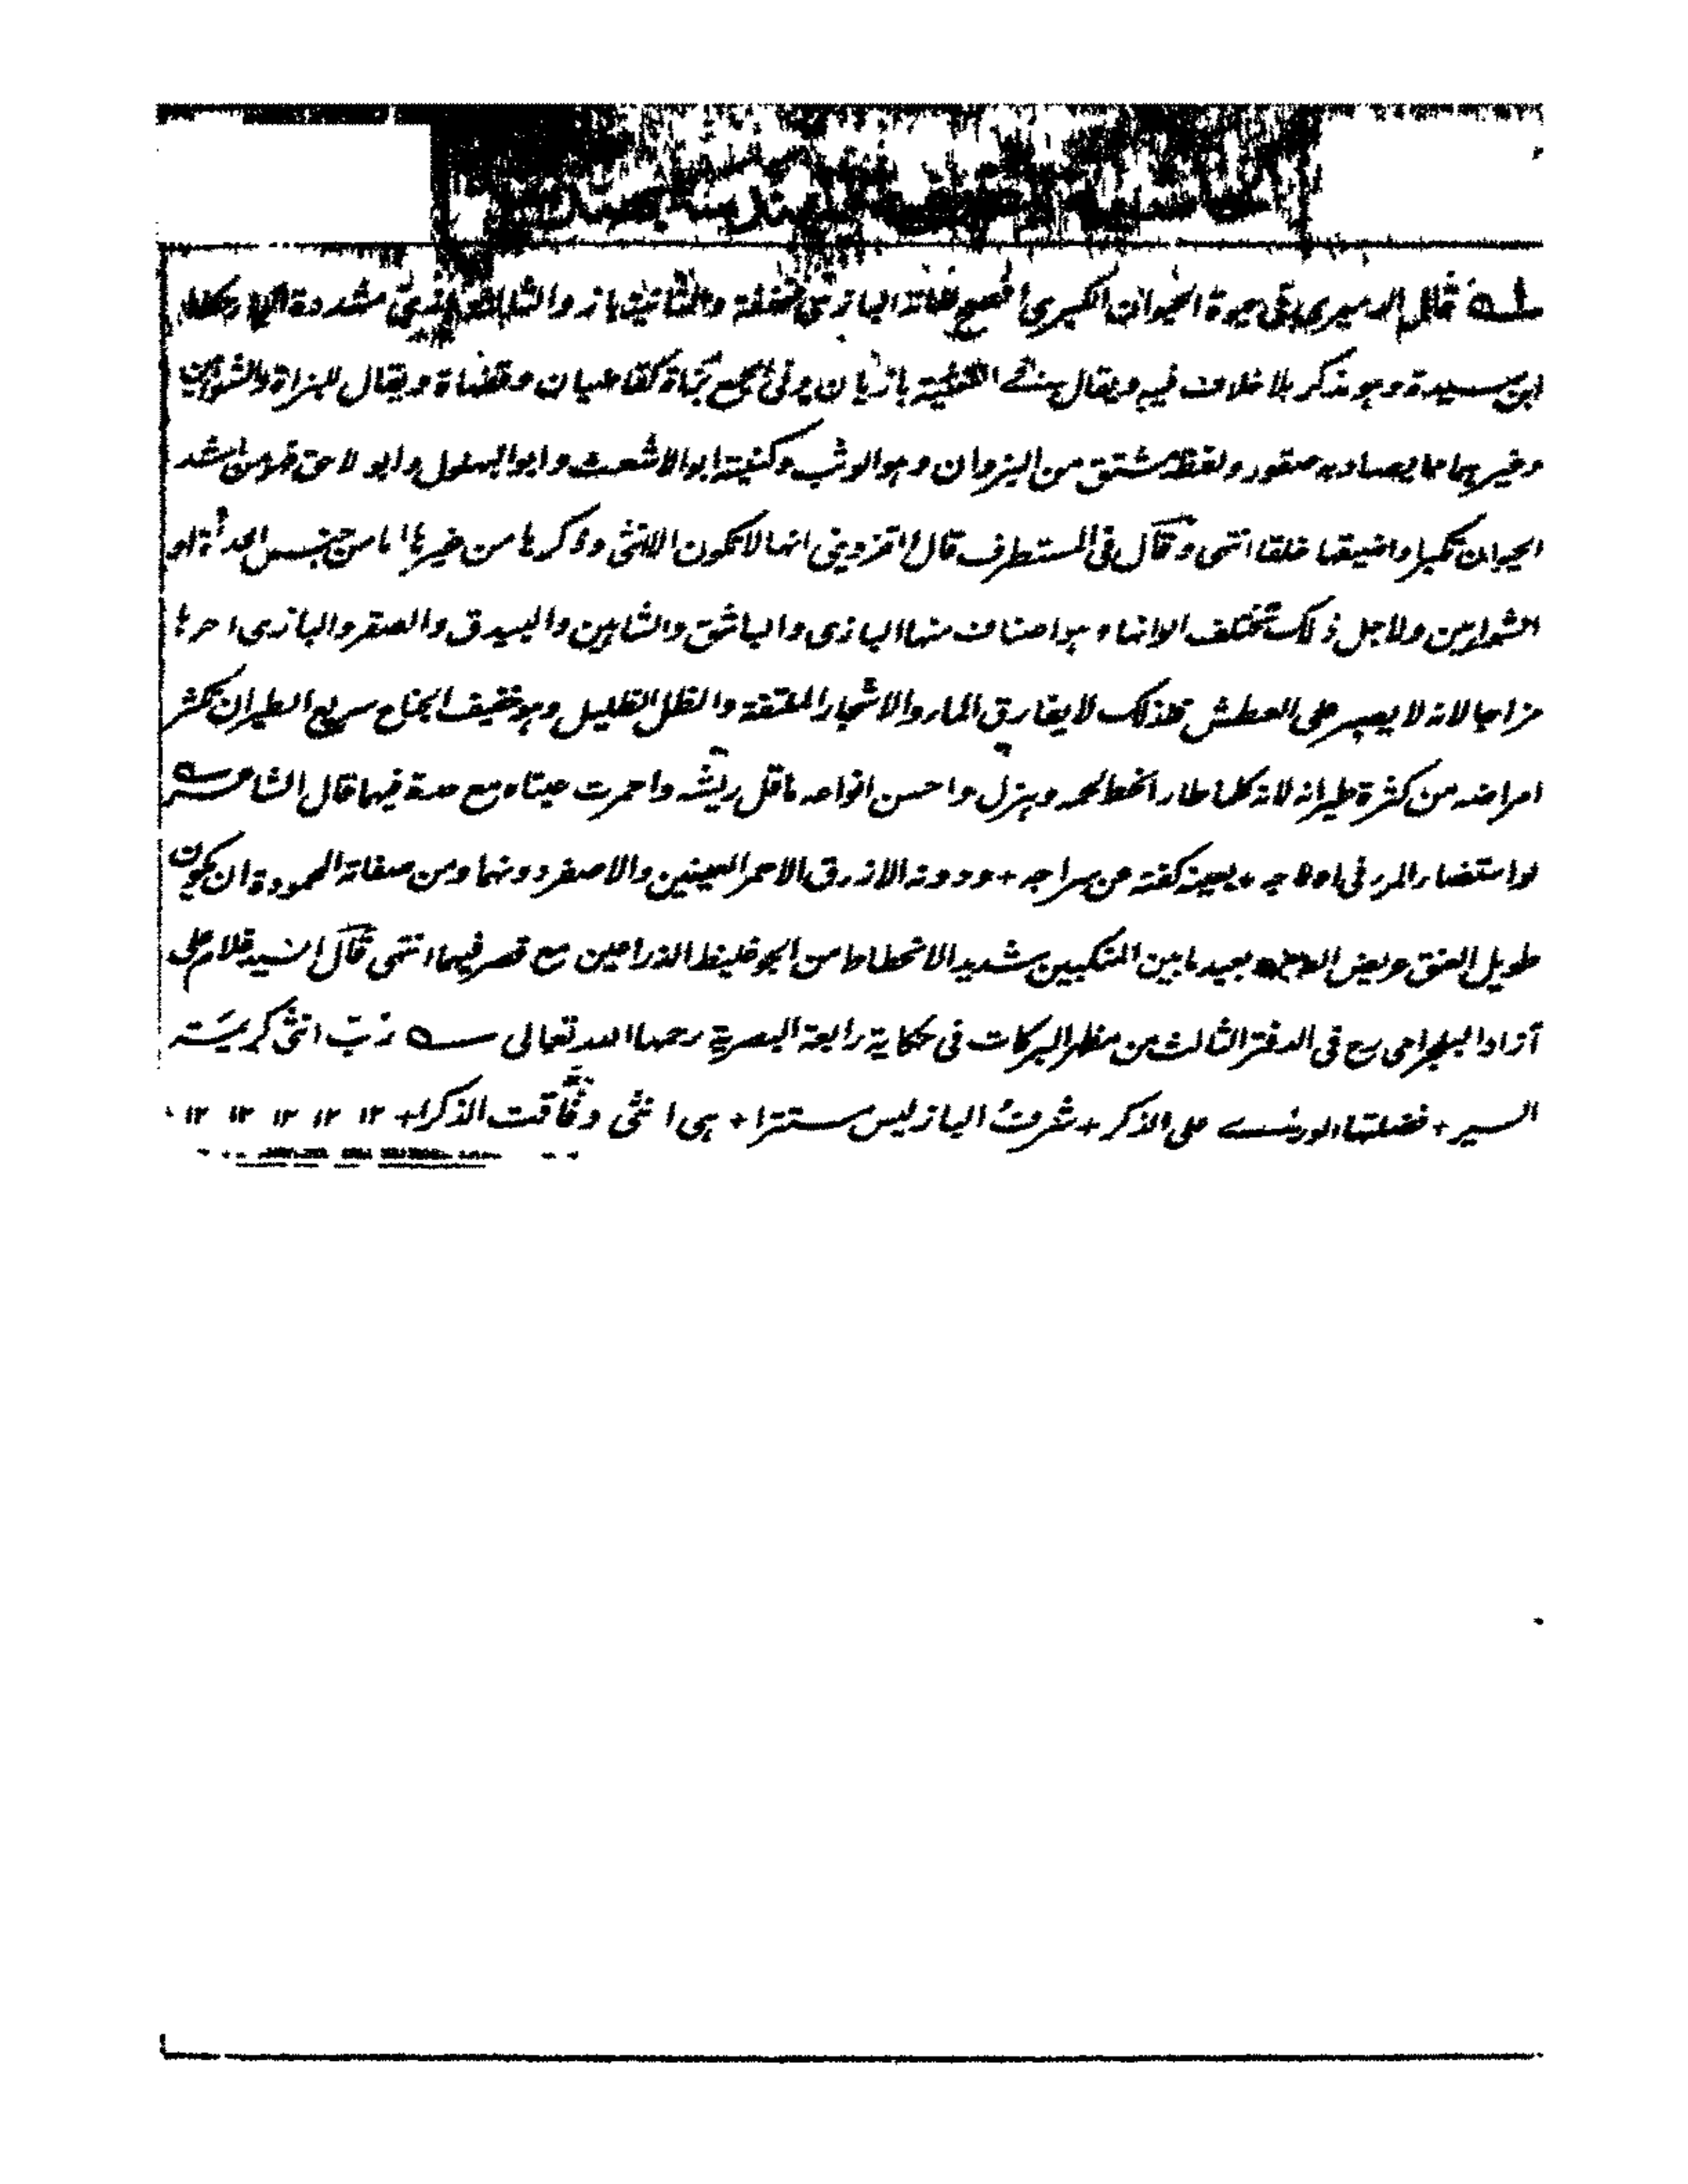 قال الدميري في حيوة الحيوان الكبرى افصح لغاته البازي مخففة والثانية باز والثالثة بازي مشددة الياء حكاها
ابن سيدة وهو مذكر بلا خلاف فيه ويقال في التثنية بازيان وفي الجمع بزاة كقاضيان وقضاة ويقال للبزاة والشواهين
وغيرهما مما يصاد به صقور ولفظه مشتق من البزوان وهو الوثب وكنيته ابو الاشعث وابو البهلول وابو لاحق وهو من اشد
الحيوان تكبرا واضيقها خلقا انتهى وقال في المستطرف قال القزويني انها لا تكون الا انثى وذكرها من غيرها اما من جنس الحدأة او
الشواهين ولاجل ذلك تختلف الوانها وهو اصناف منها البازى والباشق والشاهين والبيدق والصقر والبازى احرها
مزاجا لانه لا يصبر على العطش فلذلك لا يفارق الماء والاشجار الملتفة والظل الظليل وهو خفيف الجناح سريع الطيران تكثر
امراضه من كثرة طيرانه لانه كلما طار انحط لحمه وهزل واحسن انواعه ما قل ريشه واحمرت عيناه مع حدة فيهما قال الشاعر
لو استضاء المرء فى ادلاجه + بعينه كفته عن سراجه + ودونه الازرق الاحمر العينين والاصفر دونهما ومن صفاته المحمودة ان يكون
طويل العنق عريض الصدر بعيد ما بين المنكبين شديد الانحطاط من الجو غليظ الذراعين مع قصر فيهما انتهى قال السيد غلام على
آزاد البلجرامى رح فى الدفتر الثالث من مظهر البركات فى حكاية رابعة البصرية رحمها الله تعالى رب انثى كريمة
السير + فضلتها الورى على الذكر + شرف الباز ليس مستترا + هى انثى وفاقت الذكرا + ١٢ ١٢ ١٢ ١٢ ١٢